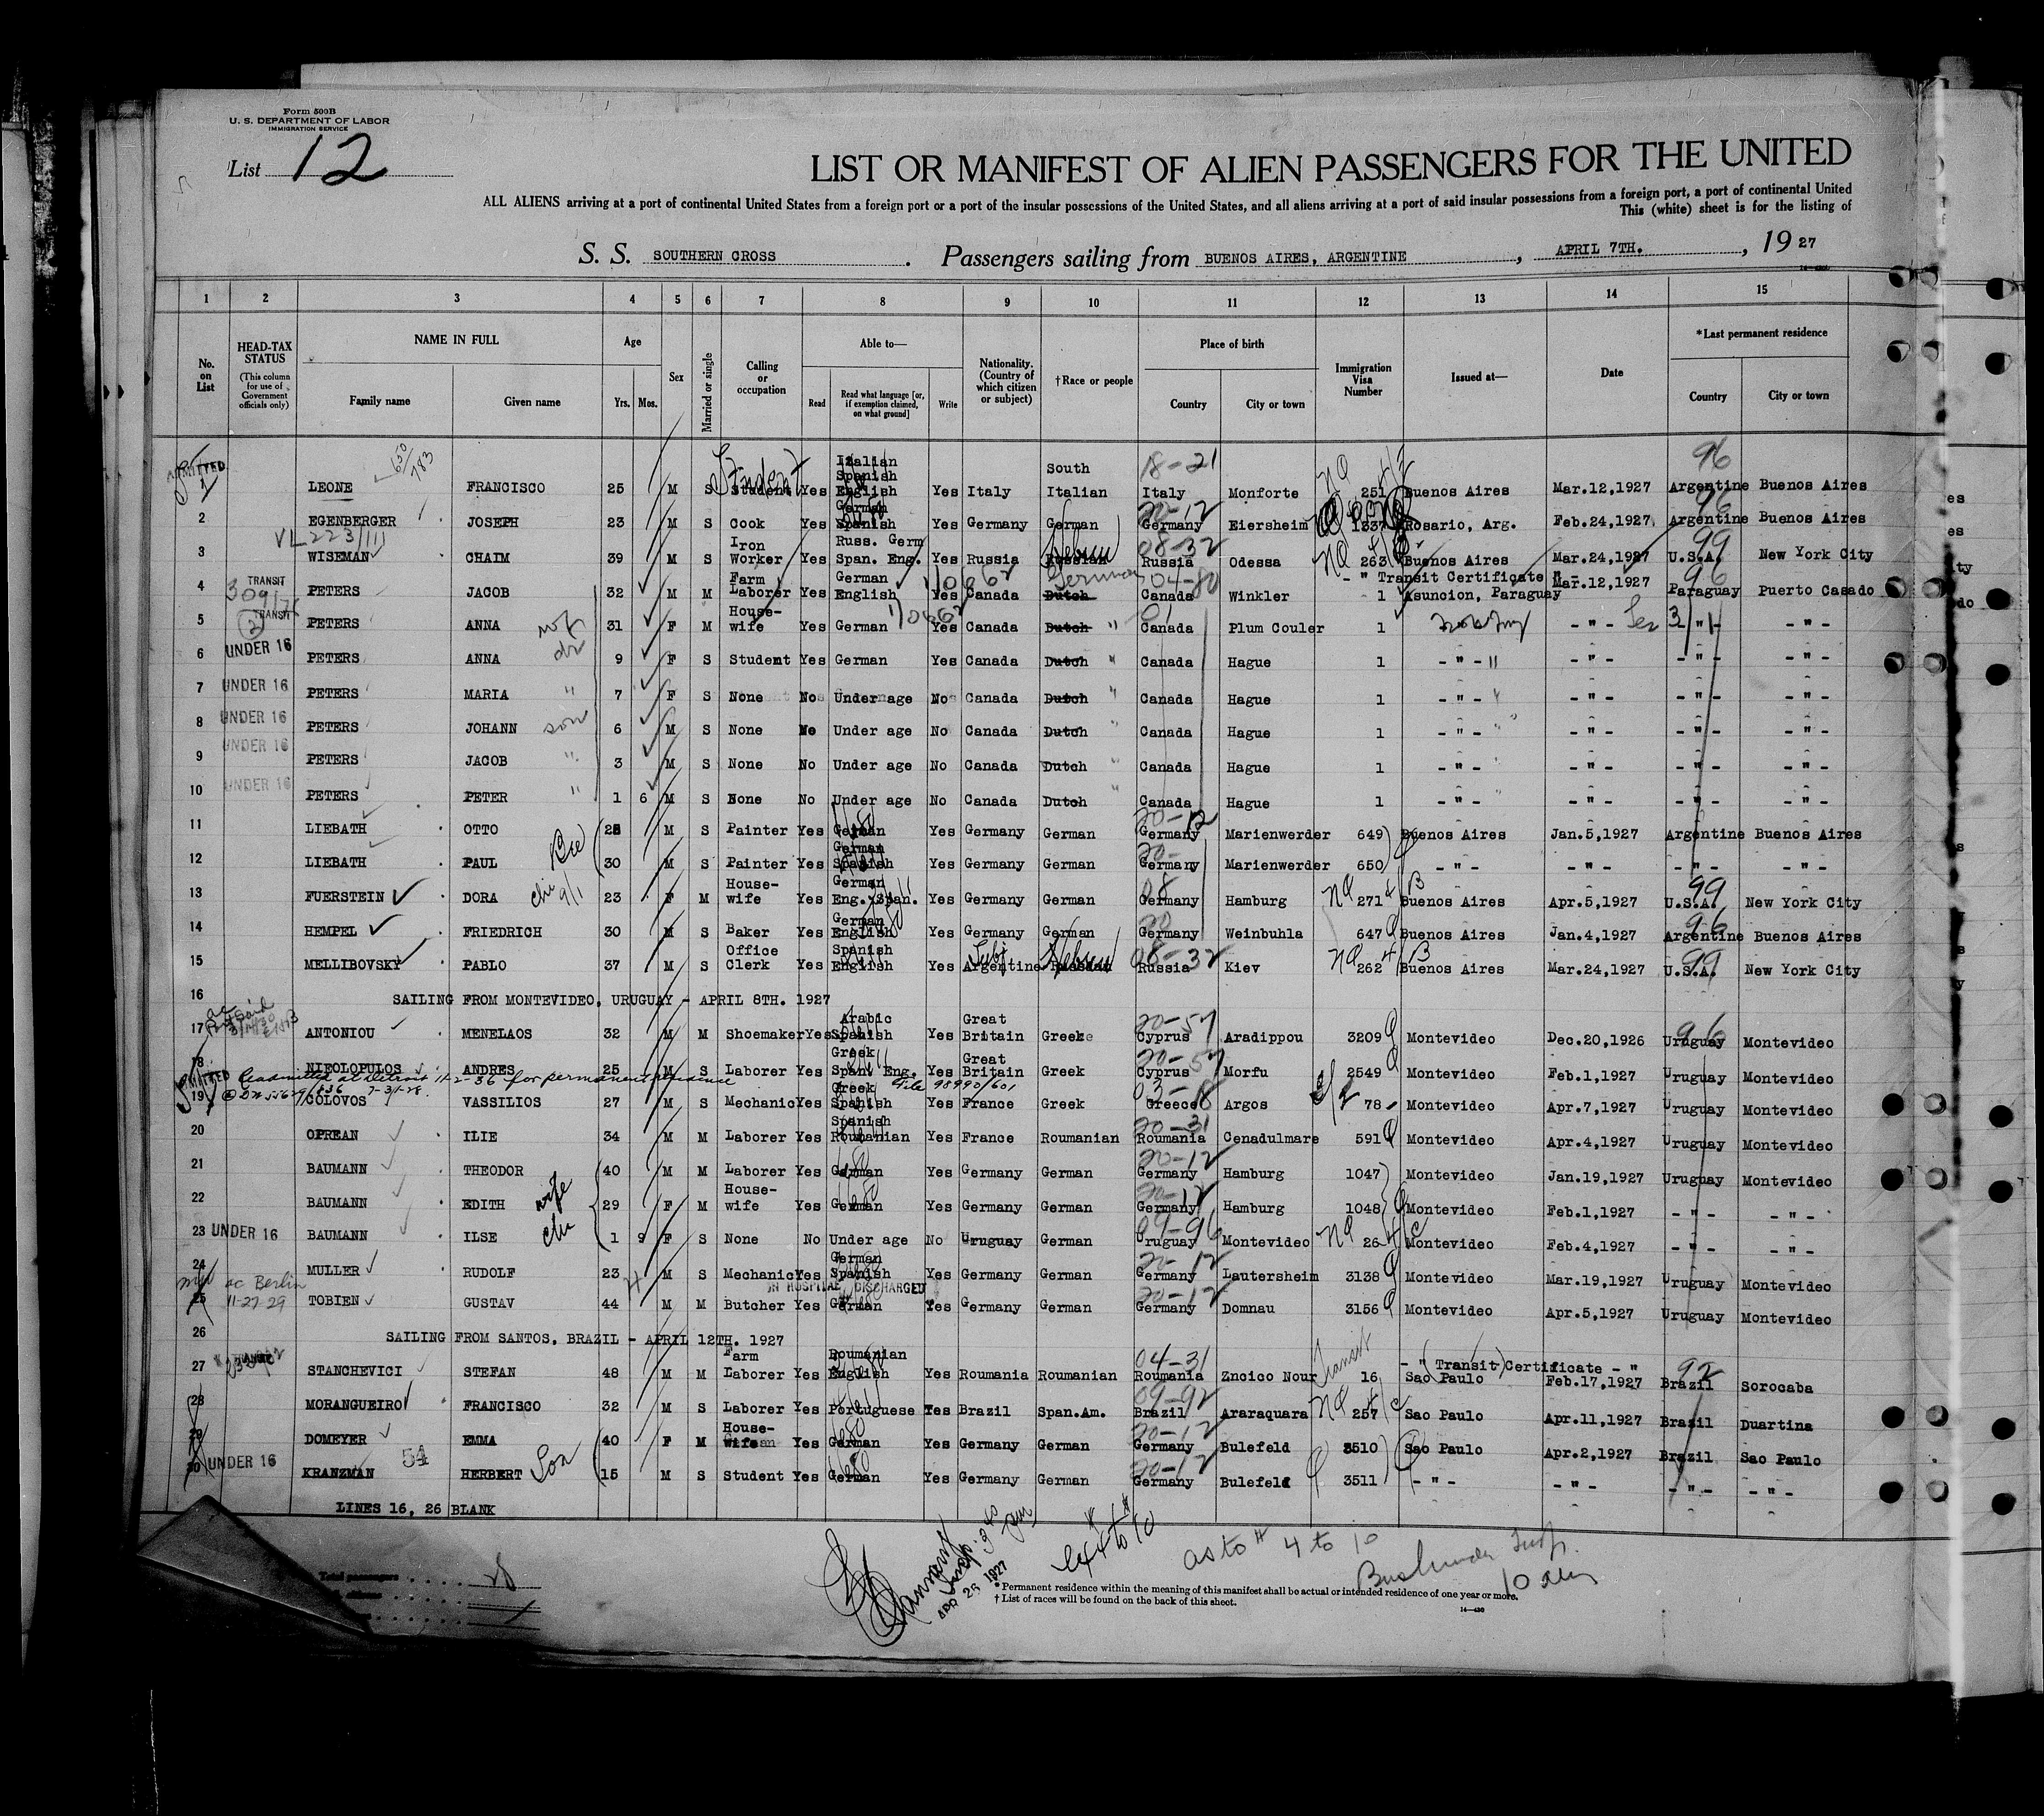 Form 500B
U. S. DEPARTMENT OF LABOR
IMMIGRATION SERVICE
List 12
LIST OR MANIFEST OF ALIEN PASSENGERS FOR THE UNITED
ALL ALIENS arriving at a port of continental United States from a foreign port or a port of the insular possessions of the United States, and all aliens arriving at a port of said insular possessions from a foreign port, a port of continental United
This (white) sheet is for the listing of
S. S. SOUTHERN CROSS . Passengers sailing from BUENOS AIRES, ARGENTINE , APRIL 7TH. , 19 27
1 2 3 4 5 6 7 8 9 10 11 12 13 14 15
No. on List
HEAD-TAX STATUS (This column for use of Government officials only)
NAME IN FULL
Family name Given name
Age
Yrs. Mos.
Sex
Married or single
Calling or occupation
Able to—
Read
Read what language [or, if exemption claimed, on what ground]
Write
Nationality. (Country of which citizen or subject)
†Race or people
Place of birth
Country City or town
Immigration Visa Number
Issued at—
Date
*Last permanent residence
Country City or town
ADMITTED 1 LEONE 650/783 FRANCISCO 25 M S Student Student Yes Italian Spanish English Yes Italy South Italian 18-21 Italy Monforte 251 Buenos Aires Mar.12,1927 96 Argentine Buenos Aires
2 EGENBERGER JOSEPH 23 M S Cook Yes German Spanish Yes Germany German 20-12 Germany Eiersheim 1337 Rosario, Arg. Feb.24,1927 96 Argentine Buenos Aires
3 WISEMAN CHAIM 39 M S Iron Worker Yes Russ. Germ Span. Eng. Yes Russia Russian Hebrew 08-32 Russia Odessa 263 Buenos Aires Mar.24,1927 99 U.S.A. New York City
4 TRANSIT PETERS JACOB 32 M M Farm Laborer Yes German English Yes Canada Dutch German 04-80 Canada Winkler 1 - " Transit Certificate " - Asuncion, Paraguay Mar.12,1927 96 Paraguay Puerto Casado
5 TRANSIT PETERS ANNA 31 F M House-wife Yes German Yes Canada Dutch " Canada Plum Couler 1 - " - - " - - " -
6 UNDER 16 PETERS ANNA 9 F S Student Yes German Yes Canada Dutch " Canada Hague 1 - " - - " - - " - - " -
7 UNDER 16 PETERS MARIA " 7 F S None No Under age No Canada Dutch " Canada Hague 1 - " - - " - - " - - " -
8 UNDER 16 PETERS JOHANN son 6 M S None No Under age No Canada Dutch " Canada Hague 1 - " - - " - - " - - " -
9 UNDER 16 PETERS JACOB " 3 M S None No Under age No Canada Dutch " Canada Hague 1 - " - - " - - " - - " -
10 UNDER 16 PETERS PETER " 1 6 M S None No Under age No Canada Dutch " Canada Hague 1 - " - - " - - " - - " -
11 LIEBATH OTTO M S Painter Yes German Yes Germany German 20-12 Germany Marienwerder 649 Buenos Aires Jan.5,1927 Argentine Buenos Aires
12 LIEBATH PAUL 30 M S Painter Yes German Spanish Yes Germany German 20- Germany Marienwerder 650 - " - - " - - " - - " -
13 FUERSTEIN DORA 23 F M House-wife Yes German Eng. Span. Yes Germany German 08 Germany Hamburg 271 Buenos Aires Apr.5,1927 99 U.S.A. New York City
14 HEMPEL FRIEDRICH 30 M S Baker Yes German English Yes Germany German 20 Germany Weinbuhla 647 Buenos Aires Jan.4,1927 96 Argentine Buenos Aires
15 MELLIBOVSKY PABLO 37 M S Office Clerk Yes Spanish English Yes Argentine Hebrew 08-32 Russia Kiev 262 Buenos Aires Mar.24,1927 99 U.S.A. New York City
16 SAILING FROM MONTEVIDEO, URUGUAY - APRIL 8TH. 1927
17 ANTONIOU MENELAOS 32 M M Shoemaker Yes Arabic Spanish Yes Great Britain Greek 20-57 Cyprus Aradippou 3209 Montevideo Dec.20,1926 96 Uruguay Montevideo
18 NIFOLOPULOS ANDRES 25 M S Laborer Yes Greek Span. Eng. Yes Great Britain Greek 20-57 Cyprus Morfu 2549 Montevideo Feb.1,1927 Uruguay Montevideo
ADMITTED Readmitted at Detroit 11-2-36 for permanent residence File 98990/601
7-31-28.
19 COLOVOS VASSILIOS 27 M S Mechanic Yes Greek Spanish Yes France Greek Greece Argos 78 Montevideo Apr.7,1927 Uruguay Montevideo
20 OPREAN ILIE 34 M M Laborer Yes Spanish Roumanian Yes France Roumanian 20-31 Roumania Cenadulmare 591 Montevideo Apr.4,1927 Uruguay Montevideo
21 BAUMANN THEODOR 40 M M Laborer Yes German Yes Germany German 20-12 Germany Hamburg 1047 Montevideo Jan.19,1927 Uruguay Montevideo
22 BAUMANN EDITH wife 29 F M House-wife Yes German Yes Germany German 20-12 Germany Hamburg 1048 Montevideo Feb.1,1927 - " - - " -
23 UNDER 16 BAUMANN ILSE 1 9 F S None No Under age No Uruguay German 09-96 Uruguay Montevideo 26 Montevideo Feb.4,1927 - " - - " -
24 MULLER RUDOLF 23 M S Mechanic Yes German Spanish Yes Germany German 20-12 Germany Lautersheim 3138 Montevideo Mar.19,1927 Uruguay Montevideo
IN HOSPITAL DISCHARGED
25 Berlin 11-27-29 TOBIEN GUSTAV 44 M M Butcher Yes German Yes Germany German 20-12 Germany Domnau 3156 Montevideo Apr.5,1927 Uruguay Montevideo
26 SAILING FROM SANTOS, BRAZIL - APRIL 12TH. 1927
27 STANCHEVICI STEFAN 48 M M Farm Laborer Yes Roumanian English Yes Roumania Roumanian 04-31 Roumania Zncico Nour Transit 16 - " (Transit) Certificate - " Sao Paulo Feb.17,1927 92 Brazil Sorocaba
28 MORANGUEIRO FRANCISCO 32 M S Laborer Yes Portuguese Yes Brazil Span.Am. 09-92 Brazil Araraquara 257 Sao Paulo Apr.11,1927 Brazil Duartina
29 DOMEYER EMMA 40 F M House-wife Yes German Yes Germany German 20-12 Germany Bulefeld 3510 Sao Paulo Apr.2,1927 Brazil Sao Paulo
30 UNDER 16 KRANZMAN 54 HERBERT Son 15 M S Student Yes German Yes Germany German 20-12 Germany Bulefeld 3511 - " - - " - - " - - " -
LINES 16, 26 BLANK
Total passengers
APR 26 1927
as to # 4 to 10
* Permanent residence within the meaning of this manifest shall be actual or intended residence of one year or more.
† List of races will be found on the back of this sheet.